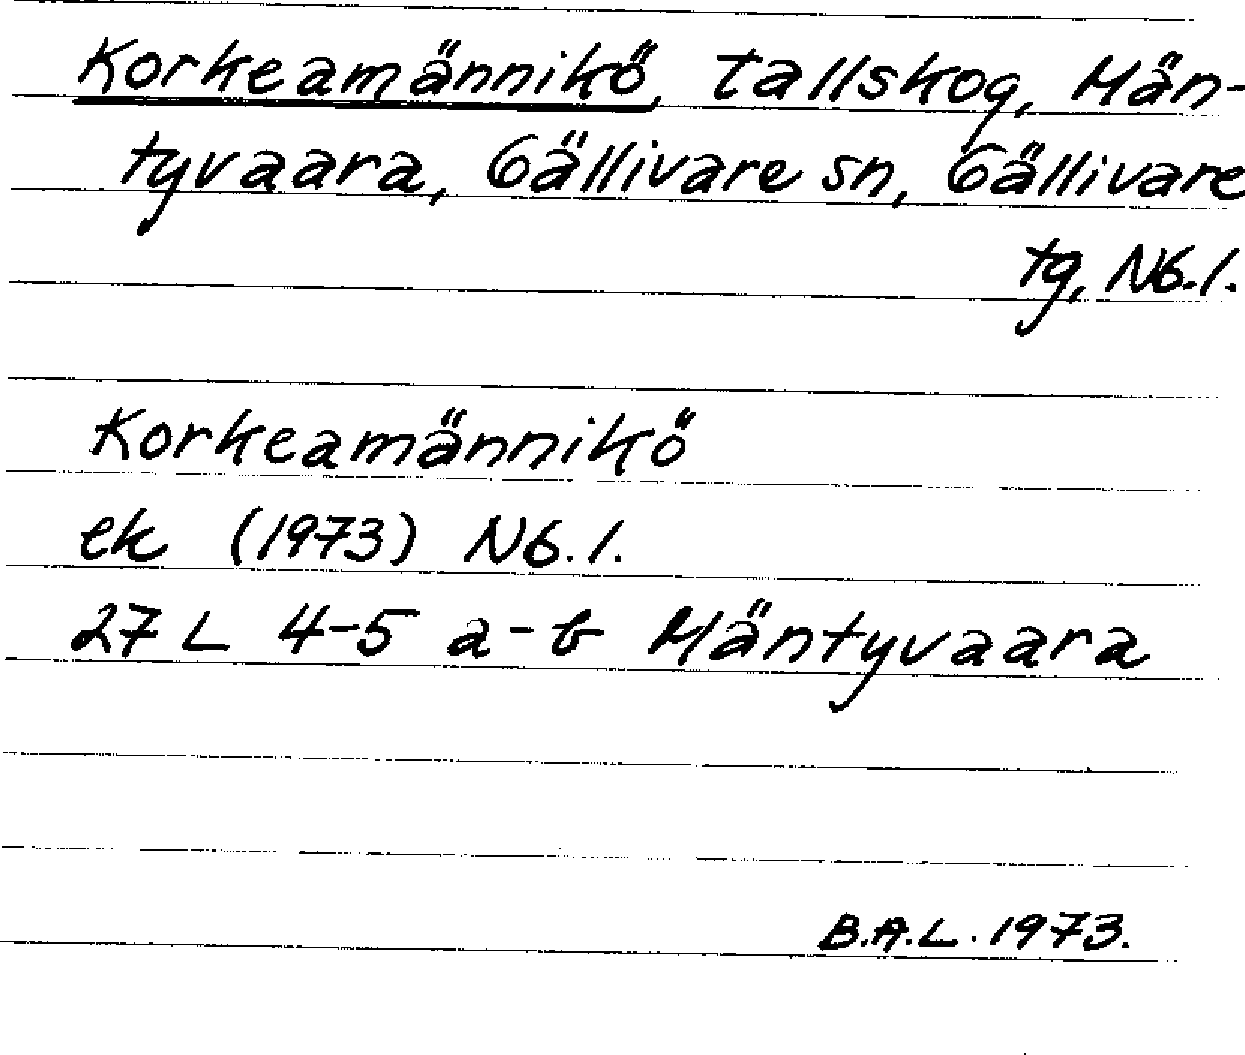 Korkeamännikö, tallskog, Män-
tyvaara, Gällivare sn, Gällivare
tg, Nb.l.
Korkeamännikö
ek (1973) Nb.l.
27 L 4-5 a-b Mäntyvaara
B.A.L. 1973.